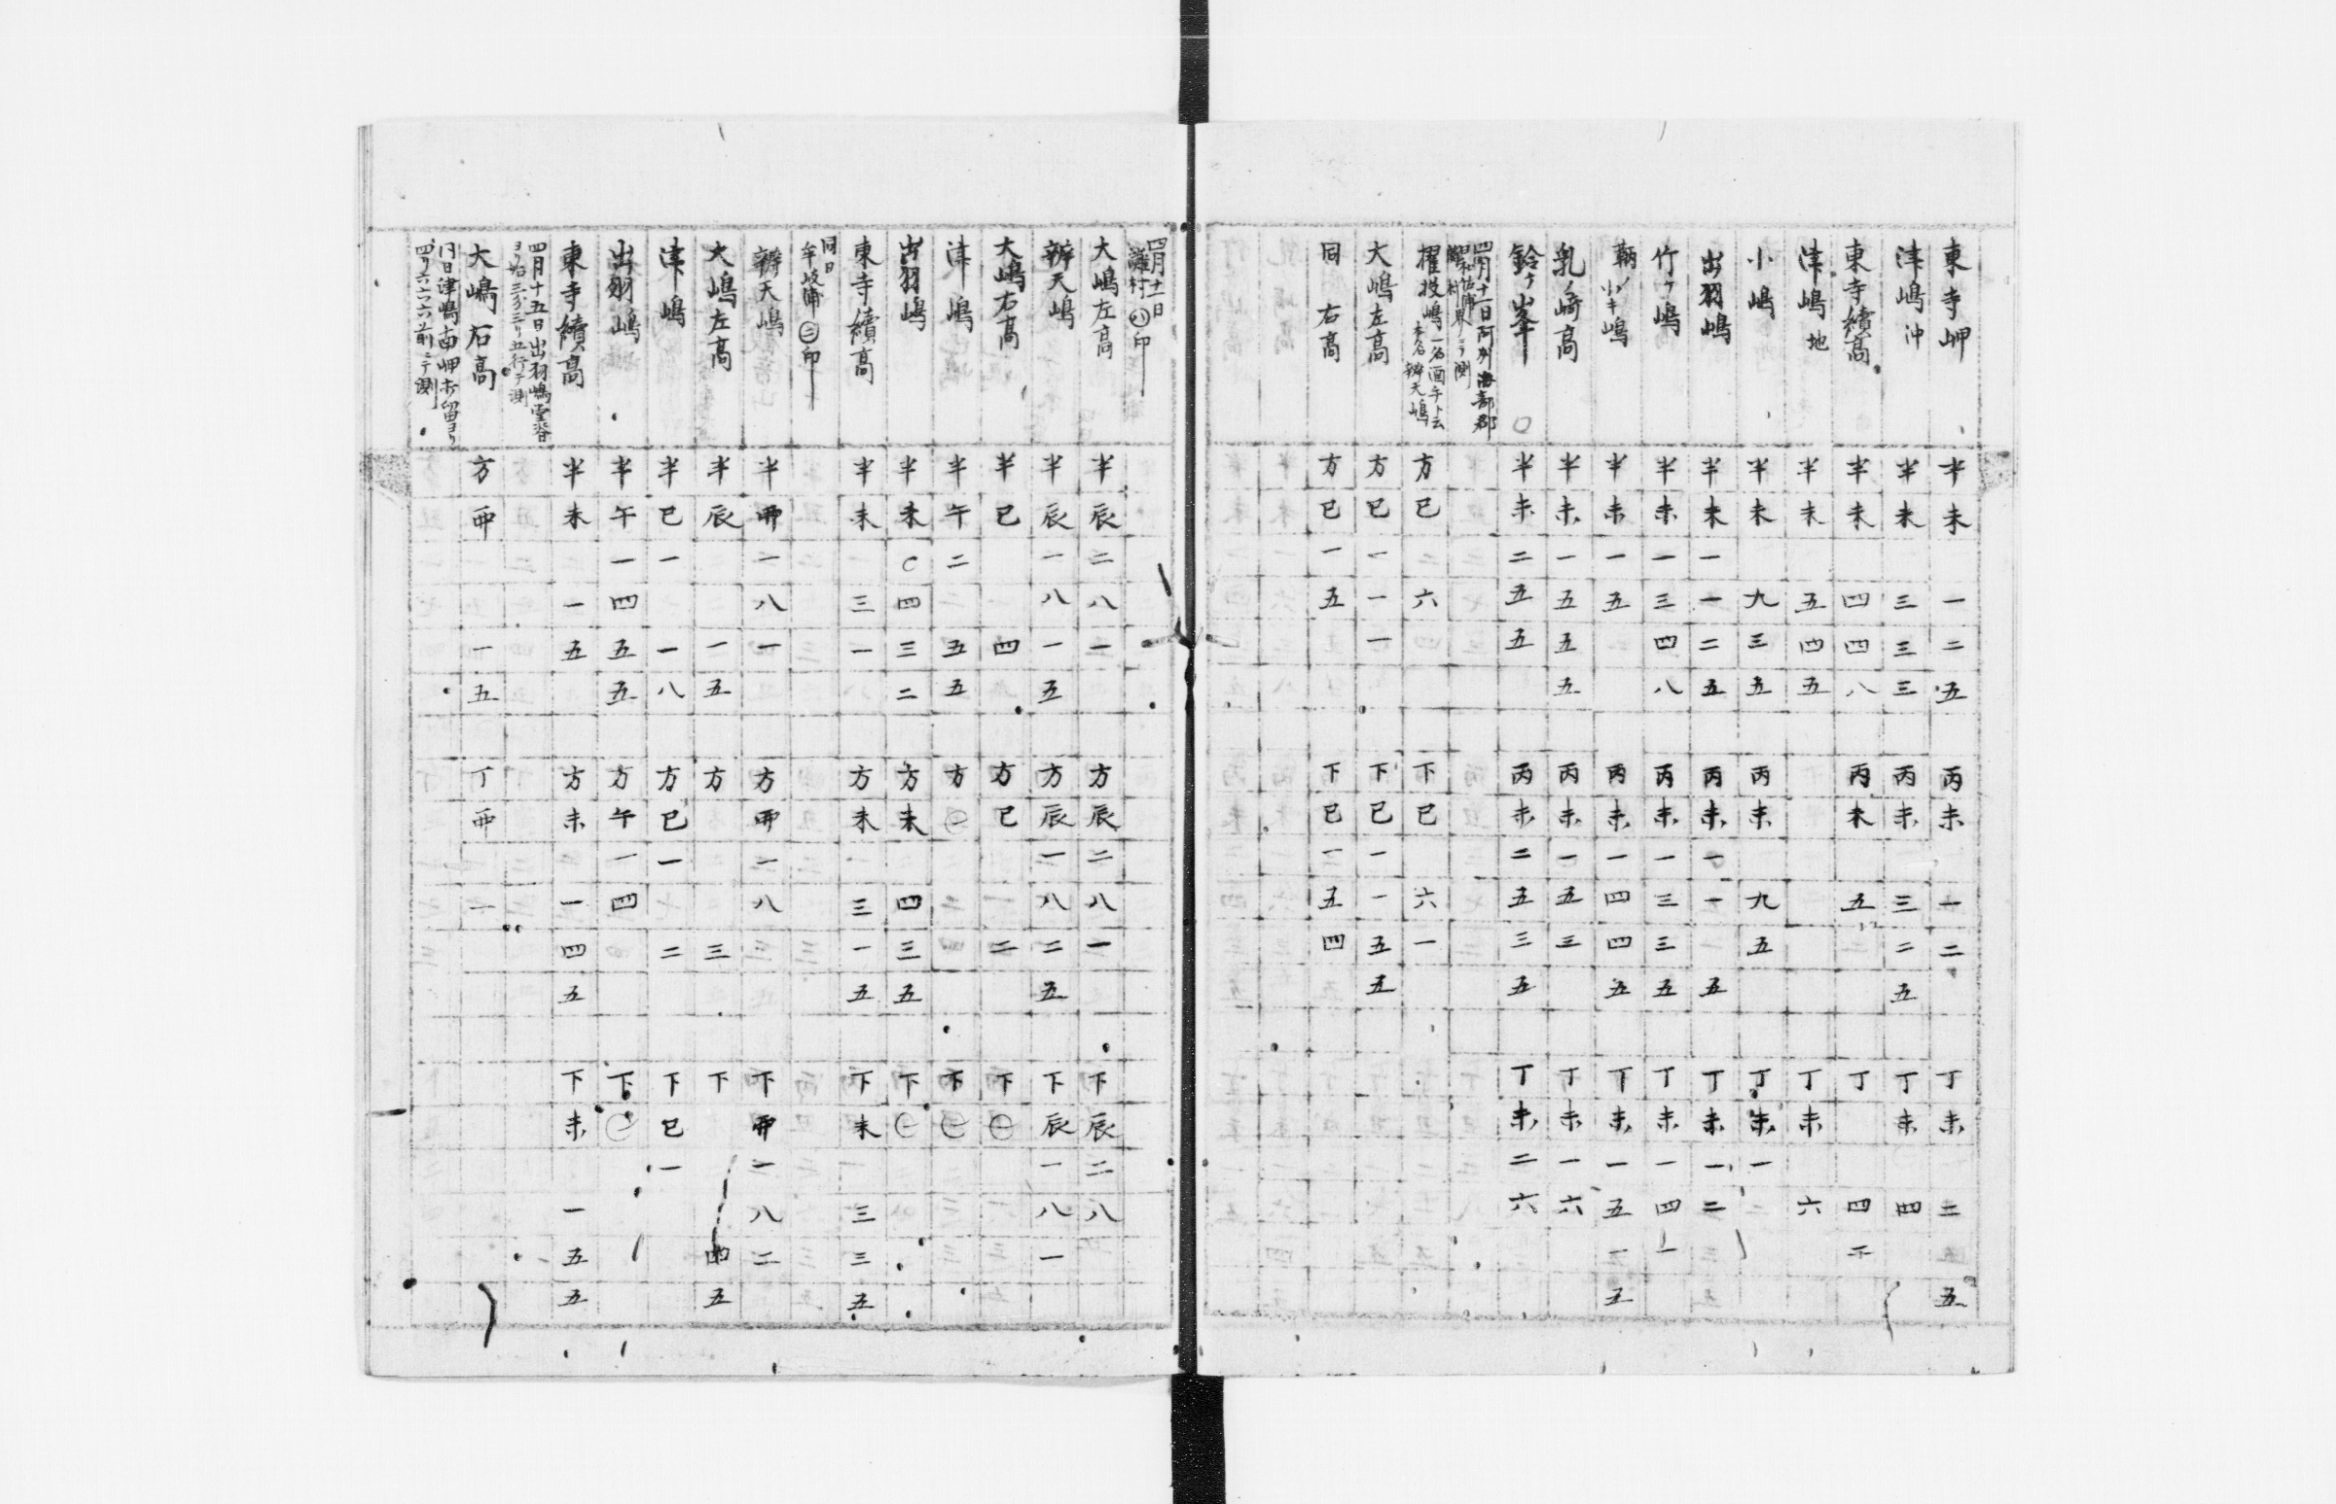 東寺岬 半未 一二五 丙未 一二 丁未 二 五
津嶋沖 半未 三三三 丙未 三二五 丁未 四
東寺續高 半未 四四八 丙未 五 丁 四
津嶋地 半未 五四五 丁未 六
小嶋 半未 九三五 丙未 九五 丁未一
出羽嶋 半未一一二五 丙未一一 五 丁未一二
竹ヶ嶋 半未一三四八 丙未一三三五 丁未一四一
鞆ノ小キ嶋 半未一五 丙未一四四五 丁未一五一五
乳ノ﨑高 半未一五五五 丙未一五三 丁未一六
鈴ヶ峯 半未二五五 丙未二五三五 丁未二六
四月十二日阿州海部郡
擢投嶋 一名酒手ト云 本名辨天嶋 方巳 六 下巳 六一
大嶋左高 方巳一一一 下巳一一五五
同 右高 方巳一五 下巳一五四
四月十一日
灘村 印
大嶋左高 半辰二八一 方辰二八一 下辰二八
辨天嶋 半辰一八一五 方辰一八二五 下辰一八一
大嶋右高 半巳 四 方巳 二 下㊀
津嶋 半午二 五五 方㊀ 下㊀
出羽嶋 半未〇四三二 方未 四三五 下㊀
東寺續高 半未 三一 方未 三一五 下未 三三五
同日
牟岐浦㊁印
辨天嶋 半卯一八一 方卯一八 下卯一八二
大嶋左高 半辰 一五 方 三 下 四五
津嶋 半巳一 一八 方巳一 二 下巳一
出羽嶋 半午一四五五 方午一四 下㊀
東寺續高 半未 一五 方未 一四五 下未 一五五
四月十五日出羽嶋
大嶋右高 方卯 一五 丁卯 一
同日津嶋南岬